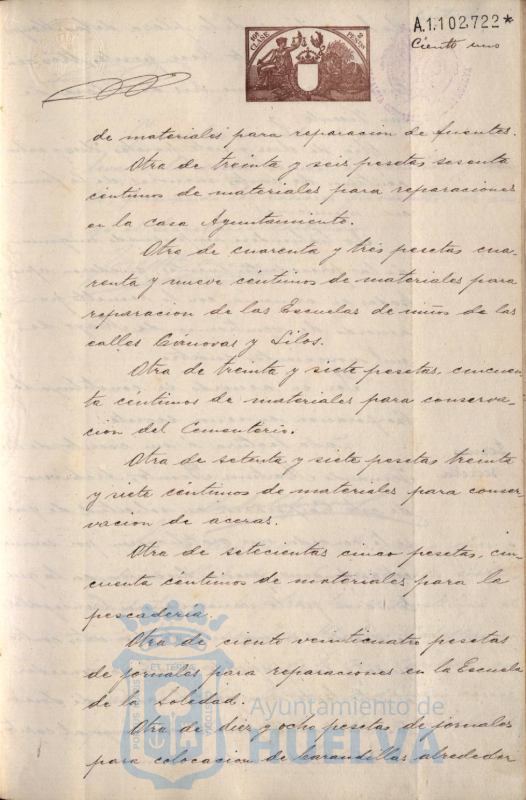 10ª CLASE
2 PESETAS
A.1.102.722*
Ciento uno
de materiales para reparacion de fuentes.
Otra de treinta y seis pesetas sesenta
centimos de materiales para reparaciones
en la casa Ayuntamiento.
Otra de cuarenta y tres pesetas cua-
renta y nueve céntimos de materiales para
reparacion de las Escuelas de niños de las
calles Cánovas y Silos.
Otra de treinta y siete pesetas, cincuen-
ta céntimos de materiales para conserva-
cion del Cementerio.
Otra de setenta y siete pesetas treinta
y siete céntimos de materiales para conser-
vacion de aceras.
Otra de setecientas cinco pesetas, cin-
cuenta céntimos de materiales para la
pescadería.
Otra de ciento veinticuatro pesetas
de jornales para reparaciones en la Escuela
de la Soledad.
Otra de diez y ocho pesetas de jornales
para colocacion de barandillas alrededor
Ayuntamiento de
HUELVA